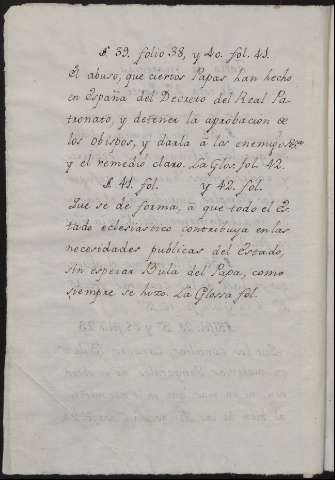 §. 39. folio 38, y 40. fol. 41.
El abuso, que ciertos Papas han hecho
en España del Decreto del Real Pa-
tronato, y detener la aprobacion de
los obispos, y darla à los enemigos
y el remedio claro. La Glos. fol. 42.
§. 41. fol. y 42. fol.
Que se de forma, à que todo el Es-
tado eclesiastico contribuya en las
necesidades publicas del Estado,
sin esperar Bula del Papa, como
siempre se hizo. La Glossa fol.